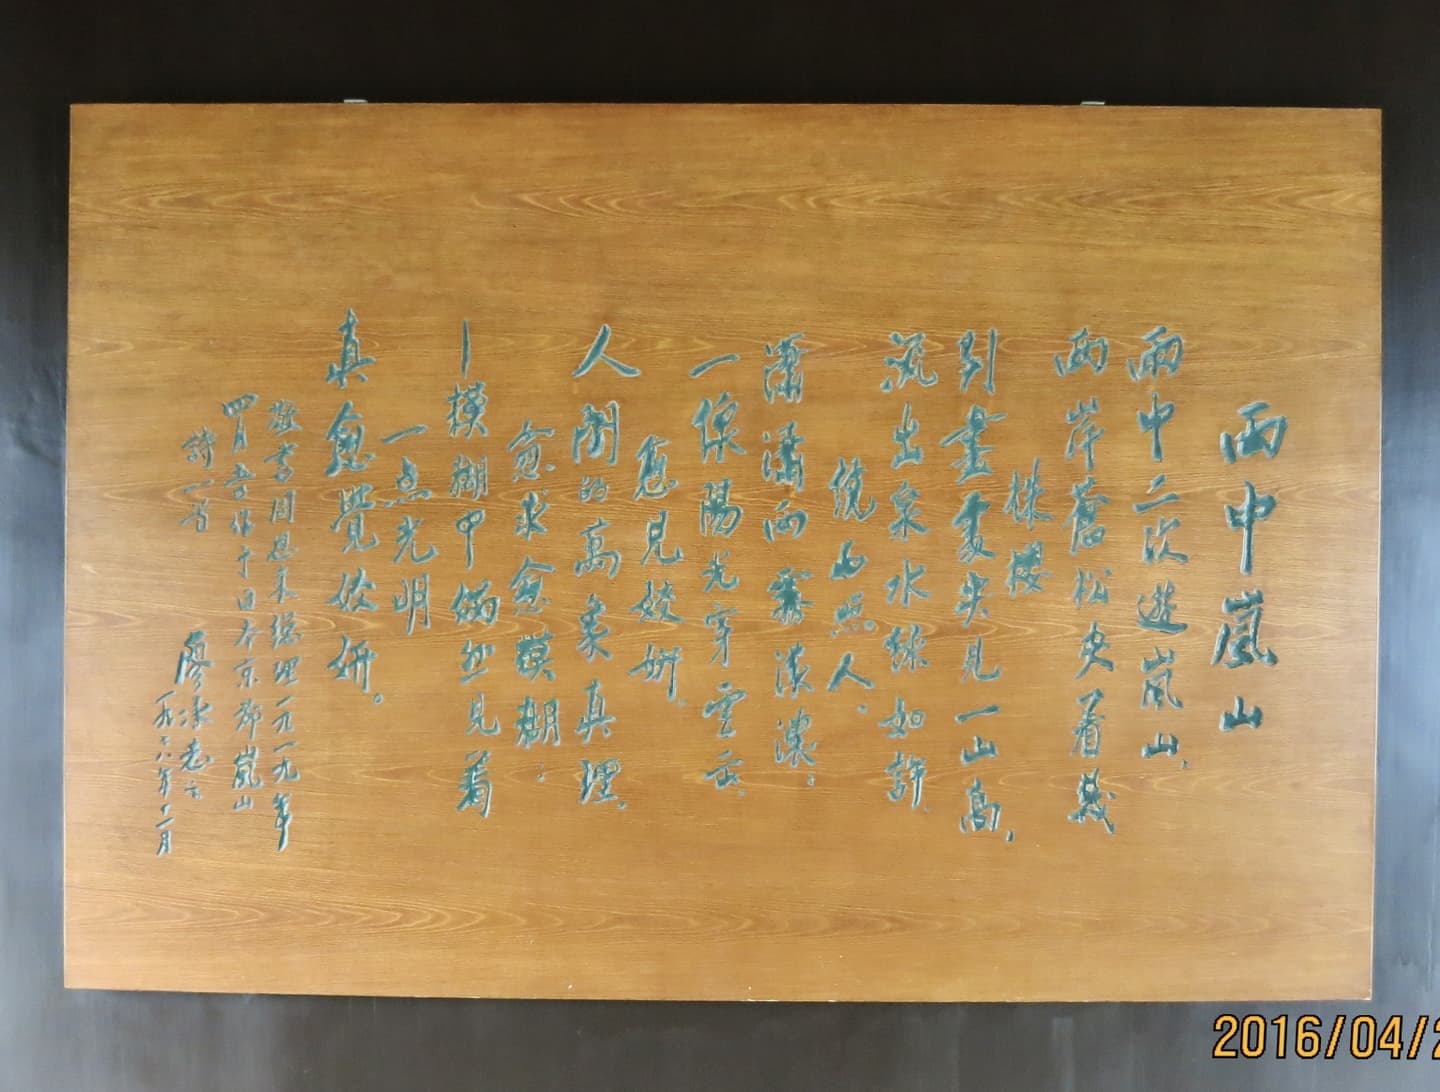 雨中嵐山
雨中二次遊嵐山、
两岸蒼松夹着幾
株櫻
到盡處突見一山高、
流出泉水绿如許、
繞石照人。
瀟瀟雨霧濛濃；
一線陽光穿雲出、
愈見姣妍。
人間的萬象真理、
愈求愈模糊；
—模糊中偶然見着
一点光明
真愈覺姣妍。
敬書周恩来總理一九一九年
四月五日作于日本京都嵐山
詩一首
廖承志
一九七八年十一月
2016/04/2